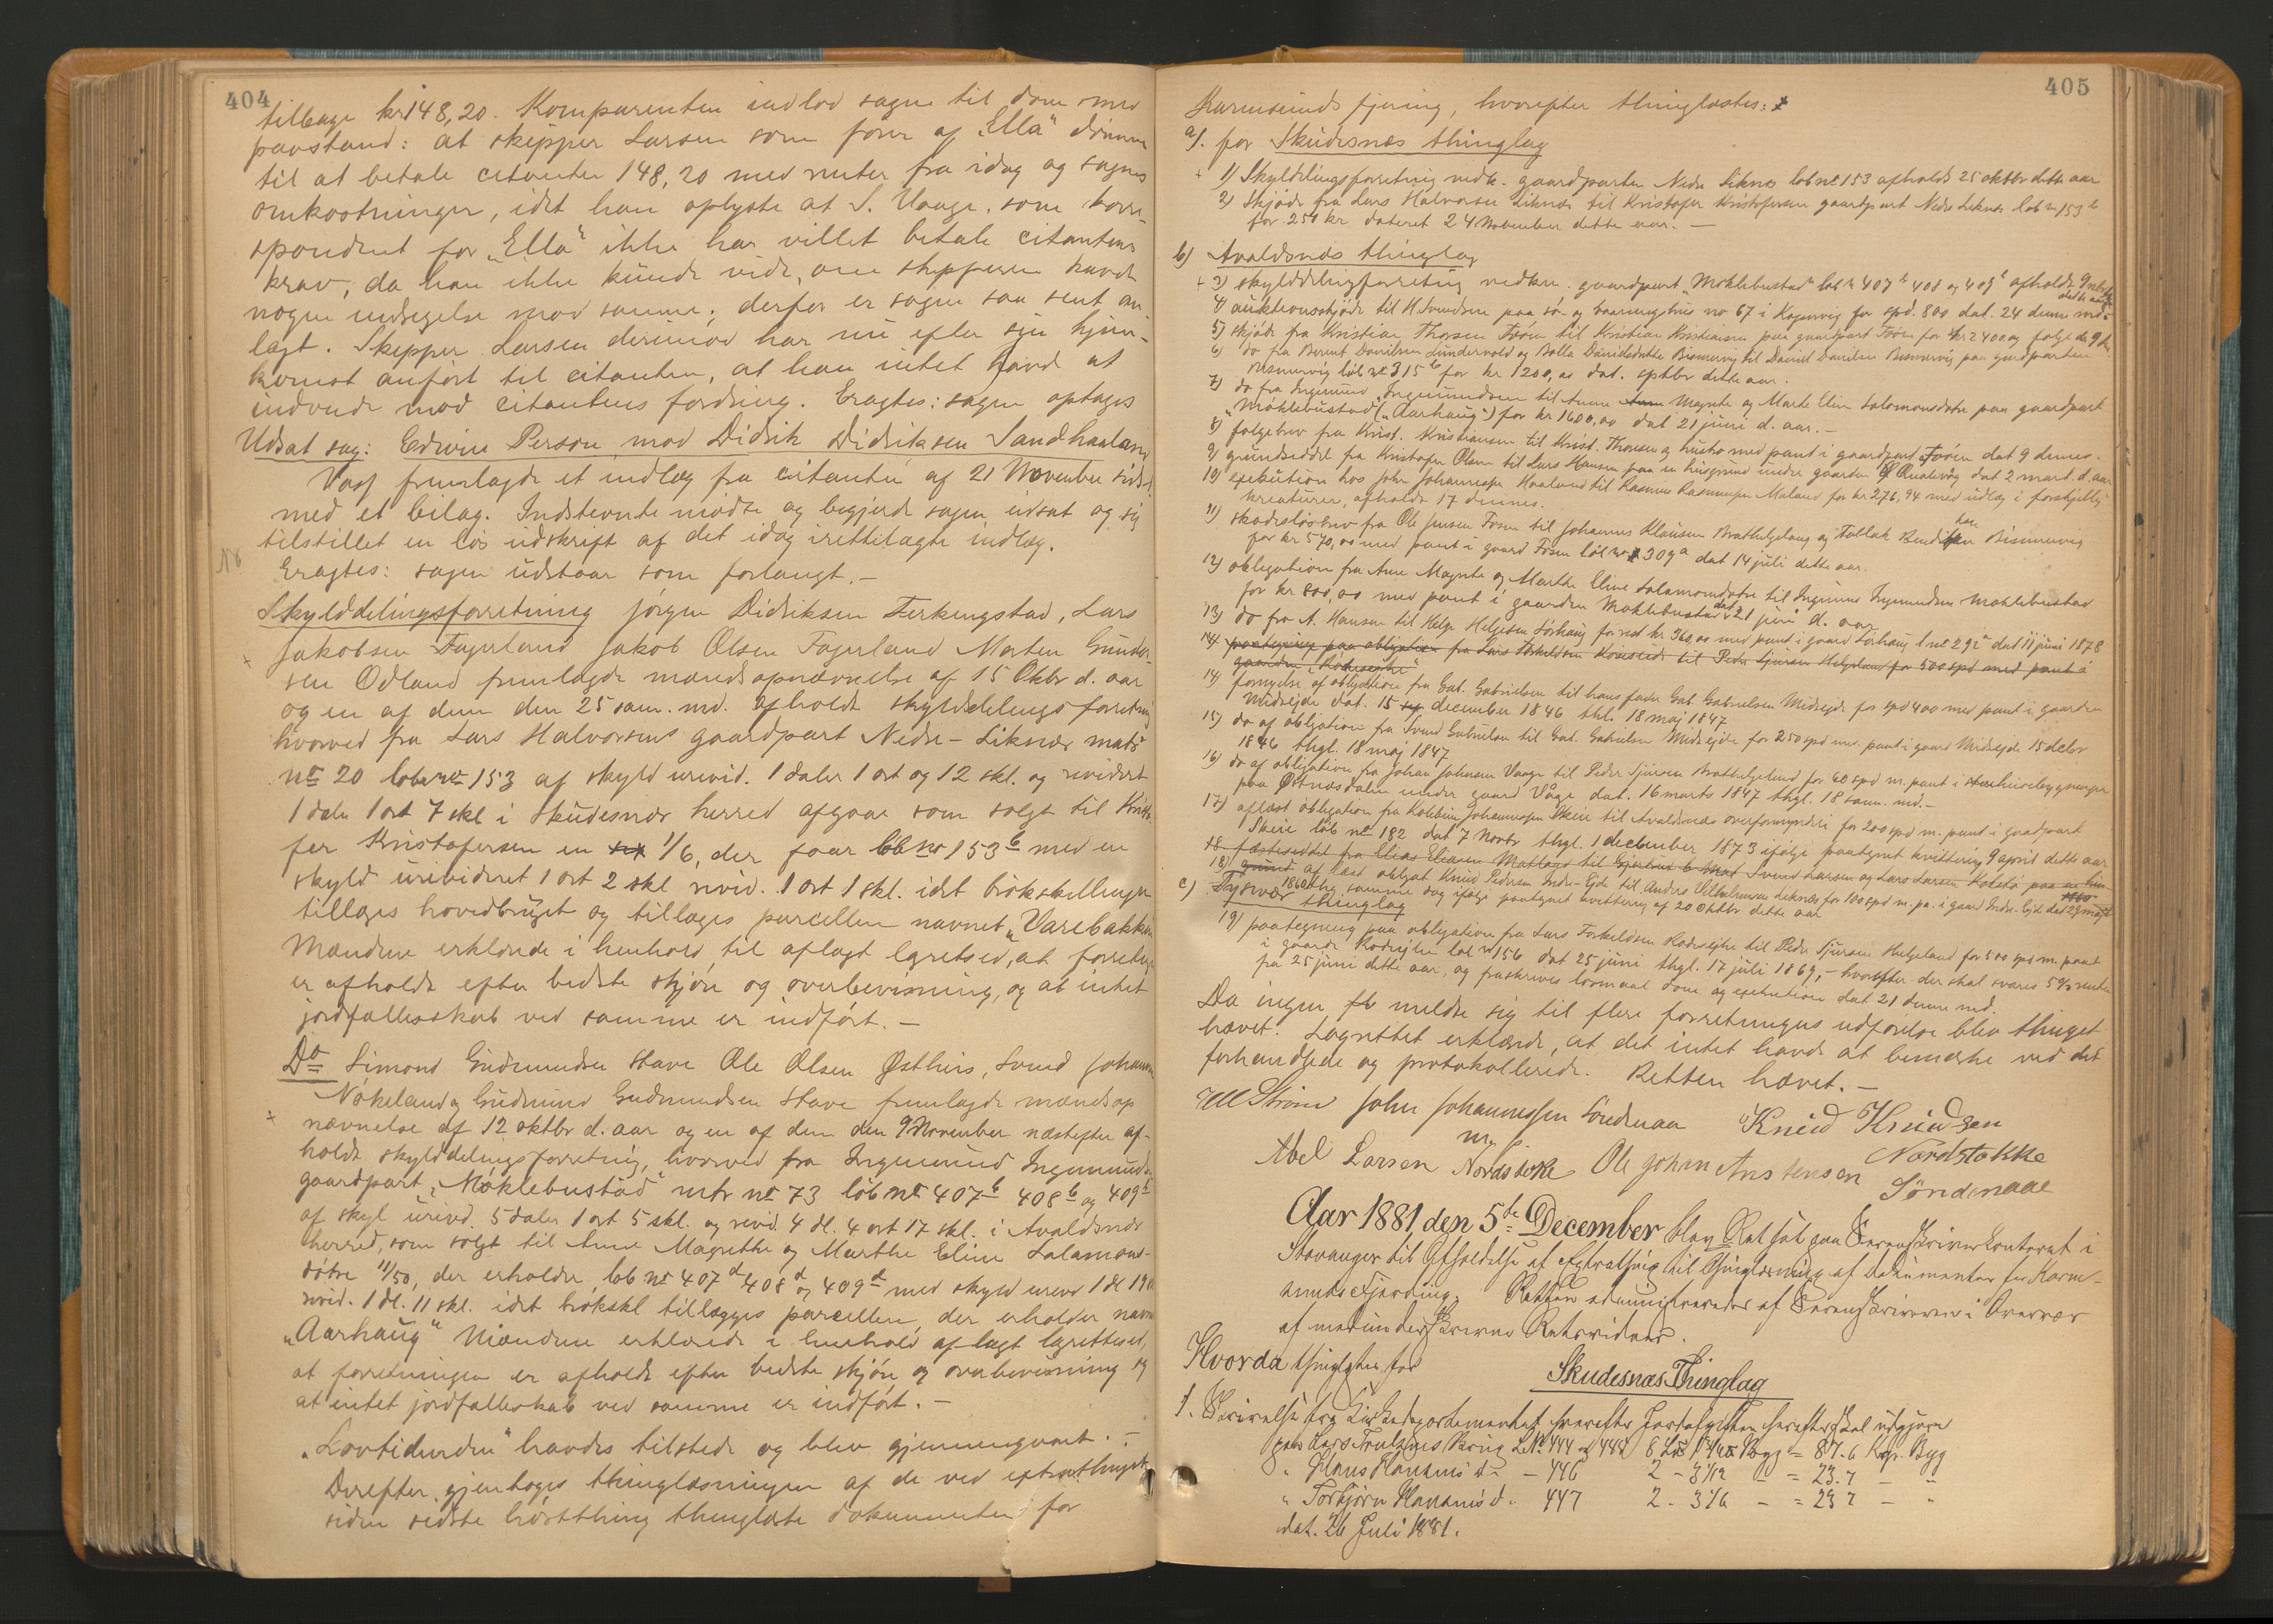 404
tilbage kr 148,20. Komparenten indlod sagen til dom med
paastand: at skipper Larsen som fører af "Ella" dømmes
til at betale citanten 148,20 med renter fra idag og sagens
omkostninger, idet han oplyste at S. Vaage som korre-
spondent for "Ella" ikke har villet betale citantens
krav, da han ikke kunde vide, om skipperen havde
nogen indsigelse mod samme; derfor er sagen saa sent an-
lagt. Skipper Larsen derimod har nu efter sin hjem-
komst anført til citanten, at han intet havd at
indvende mod citantens fordring. Eragtes: sagen optages
Udsat sag: Edvin Person mod Didrik Didriksen Sandhaaland
Vogt fremlagde et indlæg fra citanten af 21 November sidstl.
med et bilag. Indstevnte mødte og begjerde sagen udsat og sig
tilstillet en løs udskrift af det idag irettelagte indlæg.
Eragtes: sagen udstaar som forlangt. –
Skylddelingsforretning Jørgen Didriksen Ferkingstad, Lars
Jakobsen Fagerland Jakob Olsen Fagerland Morten Gunder-
sen Odland fremlagde mandsopnævnelse af 15 Oktbr d. aar
og en af dem den 25 sam. md. afholdt skylddelingsforretning
hvorved fra Lars Halvorsens gaardpart Nedre-Liknæs matr
No 20 løbeno 153 af skyld urevid. 1 daler 1 ort og 12 skl. og revideret
1 daler 1 ort 7 skl i Skudesnæs herred afgaar som solgt til Kristo-
fer Kristofersen en 1/6, der faar løb no 153 b med en
skyld urevideret 1 ort 2 skl revid. 1 ort 1 skl. idet brøkskillingen
tillages hovedbruget og tillages parcellen navnet "Varebakken
Mændene erklærede i henhold til aflagt lagretsed, at forretningen
er afholdt efter bedste skjøn og overbevisning, og at intet
jordfællesskab ved samme er indført. –
Do Simond Gudmundsen Stave Ole Olsen Østhus, Svend Johannesen
Nøkeland og Gudmund Gudmundsen Stave fremlagde mandsop
nævnelse af 12 oktbr d. aar og en af dem den 9 November næstefter af-
holdt skylddelingsforretning, hvorved fra Ingemund Ingemundsens
gaardpart, "Møklebustad" mtr no 73 løb no 407 b 408 b og 409 b
af skyl urevid. 5 daler 1 ort 5 skl. og revid. 4 dl. 4 ort 17 skl. i Avaldsnæs
herred, som solgt til Anne Magrethe og Marthe Eline Salamons-
døtre 11/50, der erholder løb no 407 d 408 d og 409 d med skyld urevid 1 dl
revid. 1 dl. 11 skl. idet brøkskl tillægges parcellen, der erholder navn
"Aarhaug" Mændene erklærede i henhold af-lagt lagrettesed,
at forretningen er afholdt efter bedste skjøn og overbevisning og
at intet jordfælleskab ved samme er indført. –
"Lovtidenden" havdes tilstede og blev gjennemgaaet. –
Derefter gjentoges thinglæsningen af de ved extrathinget
siden sidste høstthing thinglæste dokumenter for
405
Karmsunds fjering, hvorefter thinglæstes:
a). for Skudesnæs thinglag
1) Skyldelingsforretnig vedk. gaardparten Nedre Liknæs løb no 153 afholdt 25 oktbr dette aar
2) Skjøde fra Lars Halvorsen Liknæs til Kristofer Kristofersen gaardpart Nedre Liknæs løb n 153 b
for 250 kr dateret 24 November dette aar. –
b) Avaldsnæs thinglag
3) skylddelingforretnig vedkm. gaardpart "Møklebustad" løb n 407 b 408 og 409 b afholdt 9 nvbr
dette aar
4) auktionsskjøde til H. Svendsen paa sø- og vaaningshus no 67 i Kopervig for spd. 800 dat. 24 denne md.
5) skjøde fra Kristian Thorsen Fosen til Kristian Kristiansen paa gaardpart Fosen for kr 2400 og følge dat 9 ds.
6) do fra Berent Danielsen Lundervold og Bolla Danielsdatter Bismervig til Daniel Danielsen Bismervig paa gardparten
Bismervig løb no 315 b for kr 1200,00 dat. sptbr dette aar.
7) do fra Ingemund Ingemundsen til Anne Magrete og Marte Eline Salomonsdøtre paa gaardpart
"Møklebustad ("Aarhaug") for kr 1600,00 dat 21 juni d. aar. –
8) følgebrev fra Krist. Kristiansen til Krist. Thorsen og hustro med pant i gaardpart Fosen dat 9 dennes.
9) grundseddel fra Kristofer Olsen til Lars Hansen paa en husgrund under gaarden Qualevåg dat 2 mart. d. aar
10) exekution hos John Johannessen Haaland til Rasmus Rasmussen Maland for kr 276,94 med udlæg i forskjellig
kreaturer, afholdt 17 dennes.
11) skadesløsbrev fra Ole Jensen Fosen til Johannes Klausen Brathelgeland og Tollak Bendiksen Bismervig
for kr 570,00 med pant i gaard Fosen løb no 309 a dat 14 juli dette aar.
12) obligation fra Ane Magrete og Marthe Eline Salamonsdøtre til Ingemund Ingemundsen Møklebustad
for kr 800,00 med pant i gaarden Møklebustad dat 21 juni d. aar
13) do fra A. Hansen til Helge Helgesen Sørhaug for rest kr 360,00 med pant i gaard Sørhaug l no 29 dat 11 juni 1878
14) paategning paa obligation fra Lars Torkeldsen til Peder Sjursen Helgeland for 500 spd med pant i
gaarden "Rødesejke"
14) fornyelse af obligation fra Gab. Gabrielsen til hans fader Gab. Gabrielsen Midsejde for spd 400 med pant i gaarden
Midsejde dat. 15 december 1846 thl. 18 maj 1847
15) do af obligation fra Svend Gabrielsen til Gab. Gabrielsen Midsejde for 250 spd m. pant i gaard Midsejde 15 debr
1846 thgl. 18 maj 1847
16) do af obligation fra Johan Johnsen Vaage til Peder Sjursen Brathelgeland for 60 spd m. pant i husebygninger
paa Østnesdalen under gaard Våge dat. 16 marts 1847 thgl. 18 sam. md. –
17) aflæst obligation fra Kolbein Johannessen Skeie til Avaldsnæs overformynderi for 200 spd m. pant i gaardpart
Skeie løb no 182 dat 7 Novbr thgl. 1 december 1873 ifølge paategnet kvittering 9 april dette aar
18 fæsteseddel fra Elias Eliasen til Svend Larsen og Lars Larsen paa en hus-
grund
18) aflæst obligat Knud Pedersen Indre-Ejde til Anders Vilhelmsen Liknæs for 100 spd m. pa. i gaard Indre Ejde dat 29 majt
1860 thg. samme dag ifølge paategnet kvittering af 20 Oktbr dette aar
c) Tysvær thinglag
19) paategning paa obligation fra Lars Torkeldsen Rødesejke til Peder Sjursen Helgeland for 500 spd m. pant
i gaard Rødesejke løb n 156 dat 25 juni thgl. 17 juli 1869, – hvorefter der skal svares 5% rente
fra 25 juni dette aar, og fraskrives lovmaal dom og exekution dat 21 denne md.
Da ingen fl meldte sig til flere forretningers udførelse blev thinget
hævet. Lagrettet erklærede, at det intet havde at bemærke ved det
forhandlede og protokollerede. Retten hævet. –
Strøm John Johannessen Søndenaa Knud Knudsen
m. p. Nordstokke
Abel Larsen Nordstoke Ole Johan Anstensen
Søndenaae
Aar 1881, den 5te December blev Ret sat paa Sorenskriverkontoret i
Stavanger til Afholdelse af Extrathing til Thinglæsning af Dokumenter for Karm-
sunds Fjerding. Retten administreredes af Sorenskriveren i Overvær
af medunderskrevne Retsvidner.
Hvorda thinglæstes for
Skudesnæs Thinglag
1. Skrivelse fra Kirkedepartementet hvorefter Jordafgiften herefter skal udgjøre
paa Lars Trulsens Brug L.No 444 og 448 Byg = 87.6 Kgr. Byg
" Hans Hanssens d. – 446 2 – 3 1/12 – = 23.7 – "
" Torbjørn Hansens d. 447 2 – 3 1/6 – = 23 7 – "
dat. 26 Juli 1881.